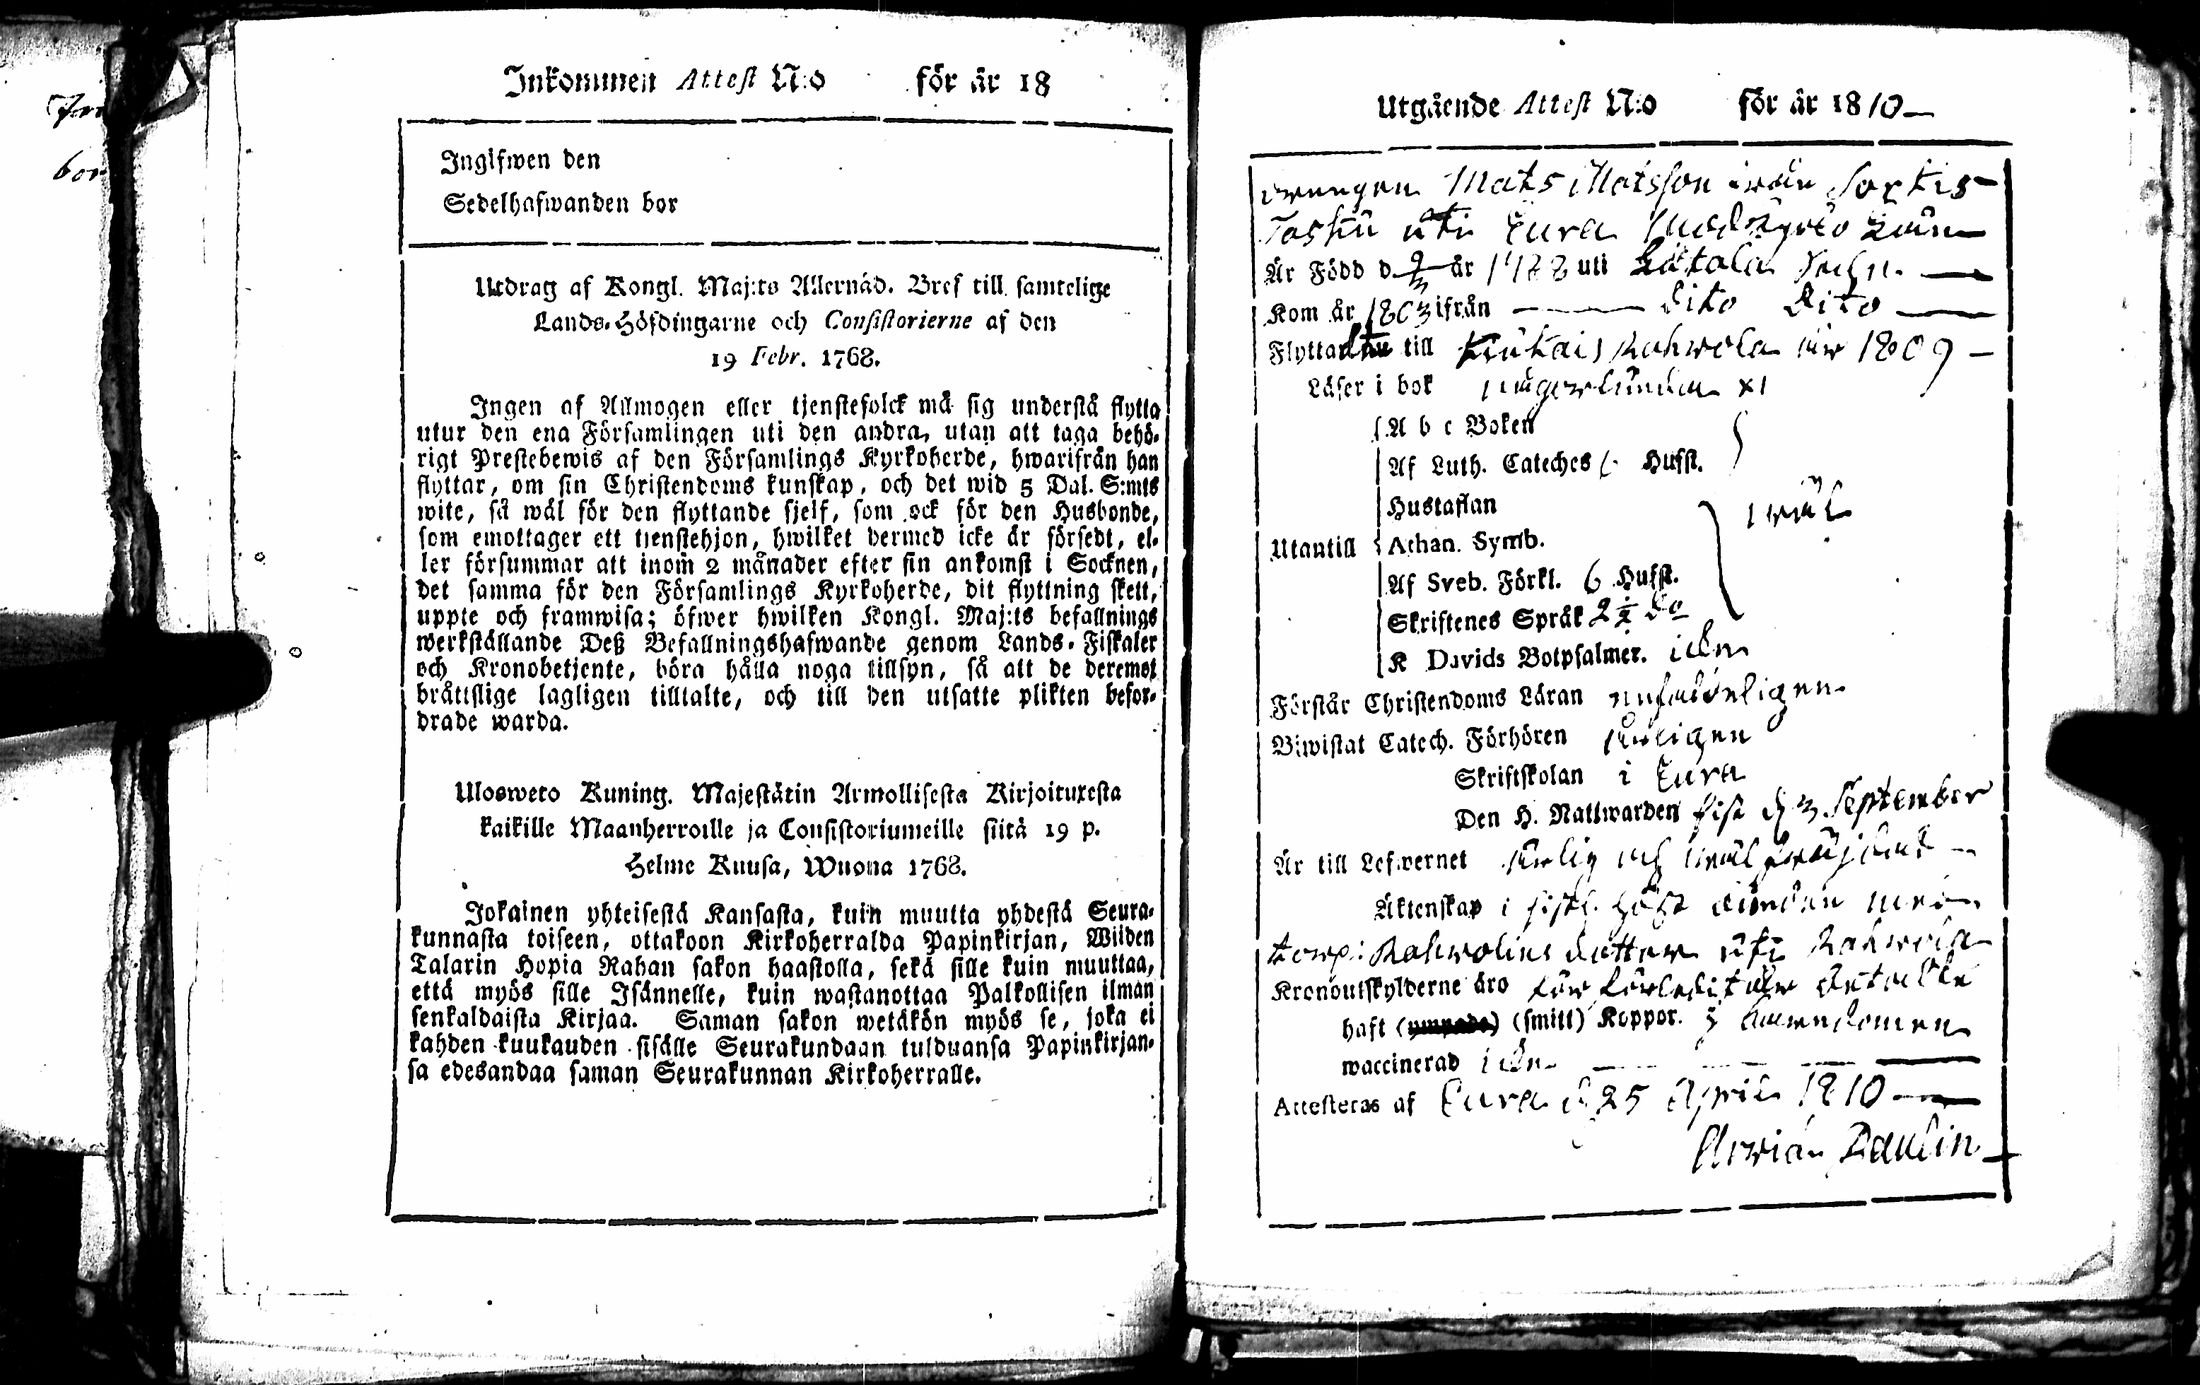 Inkommen Attest N:o för år 18
Ingifwen den
Sedelhafwanden bor
Utdrag af Kongl. Maj:ts Allernåd. Bref till samtelige
Lands-Höfdingarne och Consistorierne af den
19 Febr. 1768.
Ingen af Allmogen eller tjenstefolck må sig understå flytta
utur den ena Församlingen uti den andra, utan att taga behö-
rigt Prestebewis af den Församlings Kyrkoherde, hwarifrån han
flyttar, om sin Christendoms kunskap, och det wid 5 Dal. S:mts
wite, så wäl för den flyttande sjelf, som ock för den Husbonde,
som emottager ett tjenstehjon, hwilket dermed icke är försedt, el-
ler försummar att inom 2 månader efter sin ankomst i Socknen,
det samma för den Församlings Kyrkoherde, dit flyttning skett,
uppte och framwisa; öfwer hwilken Kongl. Maj:ts befallnings
werkställande Deß Befallningshafwande genom Lands-Fiskaler
och Kronobetjente, böra hålla noga tillsyn, så att de deremot
bråttslige lagligen tilltalte, och till den utsatte plikten befor-
drade warda.
Ulosweto Kuning. Majestätin Armollisesta Kirjoituxesta
kaikille Maanherroille ja Consistoriumeille siitä 19 p.
Helme Kuusa, Wuonna 1768.
Jokainen yhteisestä Kansasta, kuin muutta yhdestä Seura-
kunnasta toiseen, ottakoon Kirkoherralda Papinkirjan, Wiiden
Talarin Hopia Rahan sakon haastolla, sekä sille kuin muuttaa,
että myös sille Isännelle, kuin wastanottaa Palkollisen ilman
senkaldaista Kirjaa. Saman sakon wetäkön myös se, joka ei
kahden kuukauden sisälle Seurakundaan tulduansa Papinkirjan-
sa edesandaa saman Seurakunnan Kirkoherralle.
Utgående Attest N:o för år 1810
drengen Mats Matsson ifrån Sorkis-
uti Eura
Är Född d 9/3 år 1788 uti
Kom år 1803 ifrån dito dito
Flyttade till Rahwola år 1809
Läser i bok
A b c Boken
Af Luth. Cateches 6 Hufst.
Hustaflan
wäl
Utantill Athan. Symb.
Af Sveb. Förkl. 6 Hufst.
Skriftenes Språk 2 1/2 do
K Davids Botpsalmer.
Förstår Christendoms Läran
Biwistat Catech. Förhören
Skriftskolan i Eura
Den H. Nattwarden sist d 3 September
Är till Lefwernet ärlig och wäl
Äktenskap i sistl. höst
torp: Rahwolins dotter uti Rahwola
Kronoutskylderne äro
haft (ympade) (smitt) Koppor.
waccinerad
Attesteras af Eura d 25 April 1810
Arvid Paulin